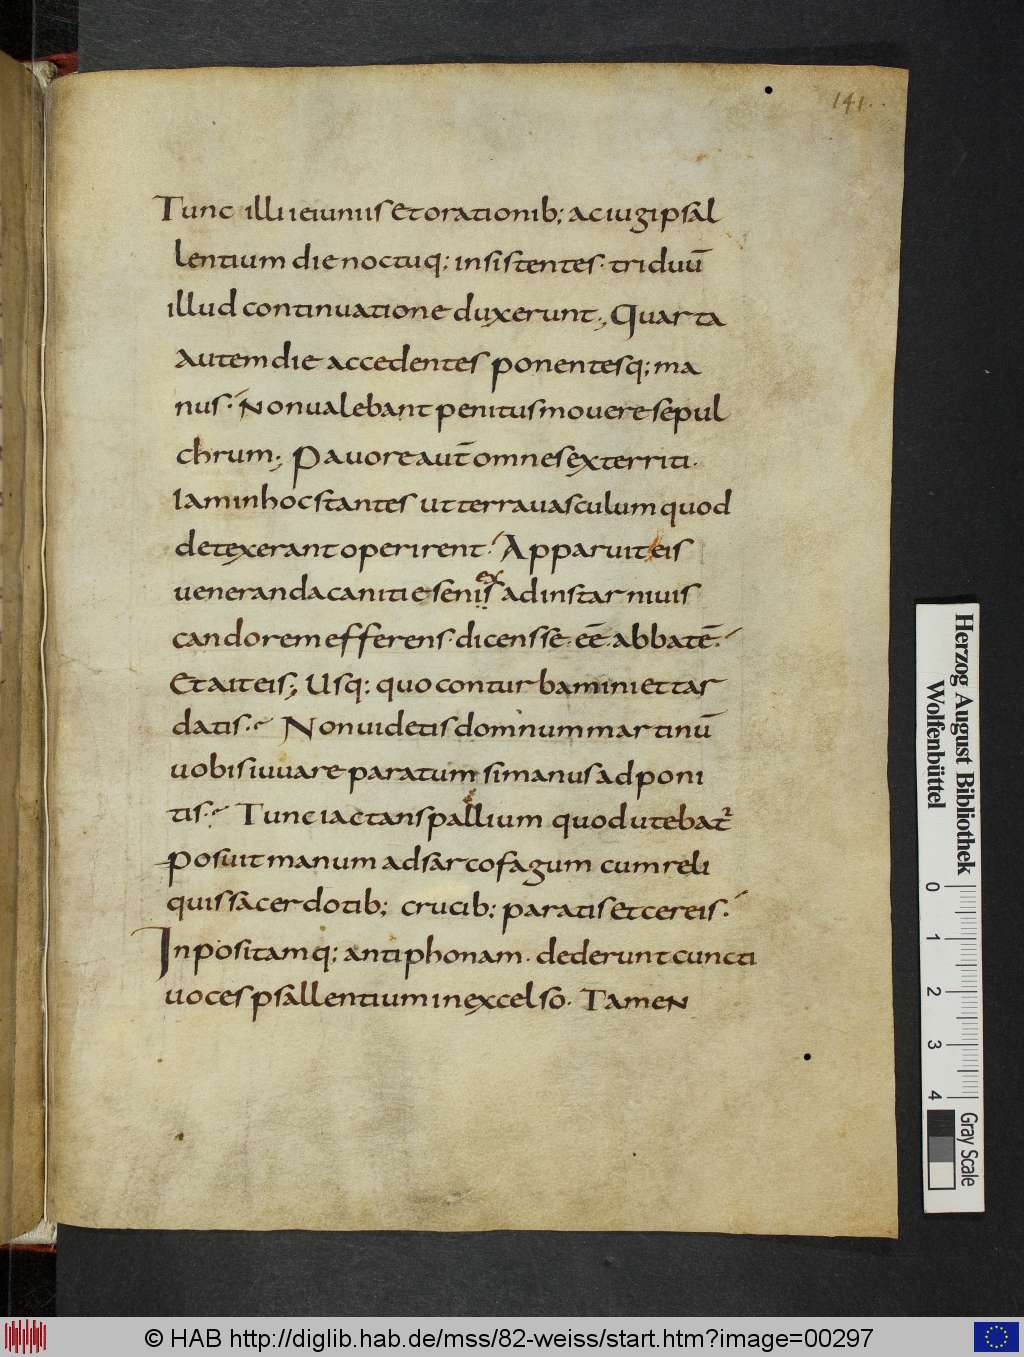 141.
Tunc illi ieiuniis et orationib; ac iugi psal
lentium die noctuq; insistentes. triduū
illud continuatione duxerunt; Quarta
autem die accedentes ponentesq; ma
nus. Non ualebant penitus mouere sepul
chrum; Pauore aut̄ omnes exterriti.
Iam in hoc stantes ut terra uasculum quod
detexerant operirent. Apparuit eis
ueneranda canitie senis ex ad instar niuis
candorem efferens. dicens se. eē. abbatē.
Et ait eis; Usq; quo conturbamini et tar
datis. Non uidetis domnum martinū
uobis iuuare paratum si manus adponi
tis. Tunc iactans pallium quod utebat᷑
Posuit manum ad sarcofagum cum reli
quis sacerdotib; crucib; paratis et cereis.
Inpositamq; antiphonam. dederunt cuncti
uoces psallentium in excelso. Tamen
Herzog August Bibliothek
Wolfenbüttel
0 1 2 3 4
Gray Scale
© HAB http://diglib.hab.de/mss/82-weiss/start.htm?image=00297